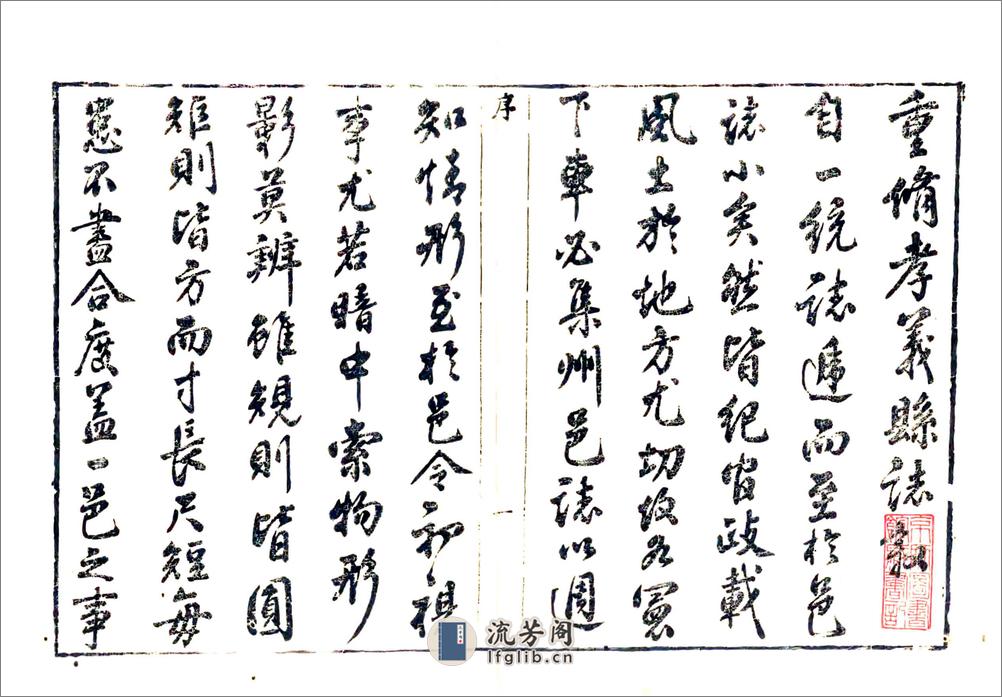 重脩孝義縣誌敘
自一統誌遞而至於邑
誌小矣然皆紀官政載
風土於地方尤切故各憲
下車必集州邑誌以週
序
一
知情形至於邑令初視
事尤若暗中索物形
影莫辨雖規則皆圓
矩則皆方而寸長尺短毎
患不盡合度蓋一邑之事
流芳阁
lfglib.cn